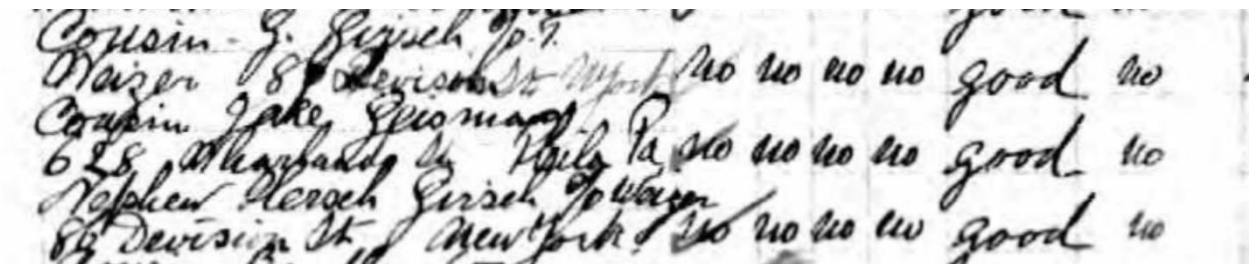 Cousin G. Girsch
Weizer 89 Devison St no no no no good no
Cousin Jake Geisman
628 St Phila Pa no no no no good no
Nephew Hersch Girsch
89 Devision St. New York. no no no no good no